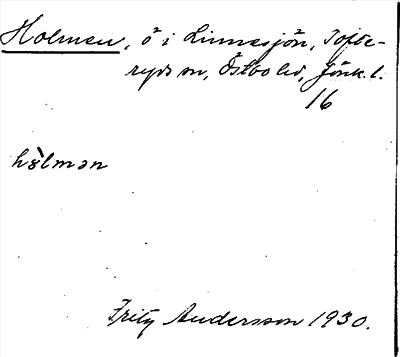 Holmen, ö i Linnesjön, Tofte-
ryds sn, Östbo hd, Jönk. l.
16
hòlmən
Fritz Andersson 1930.